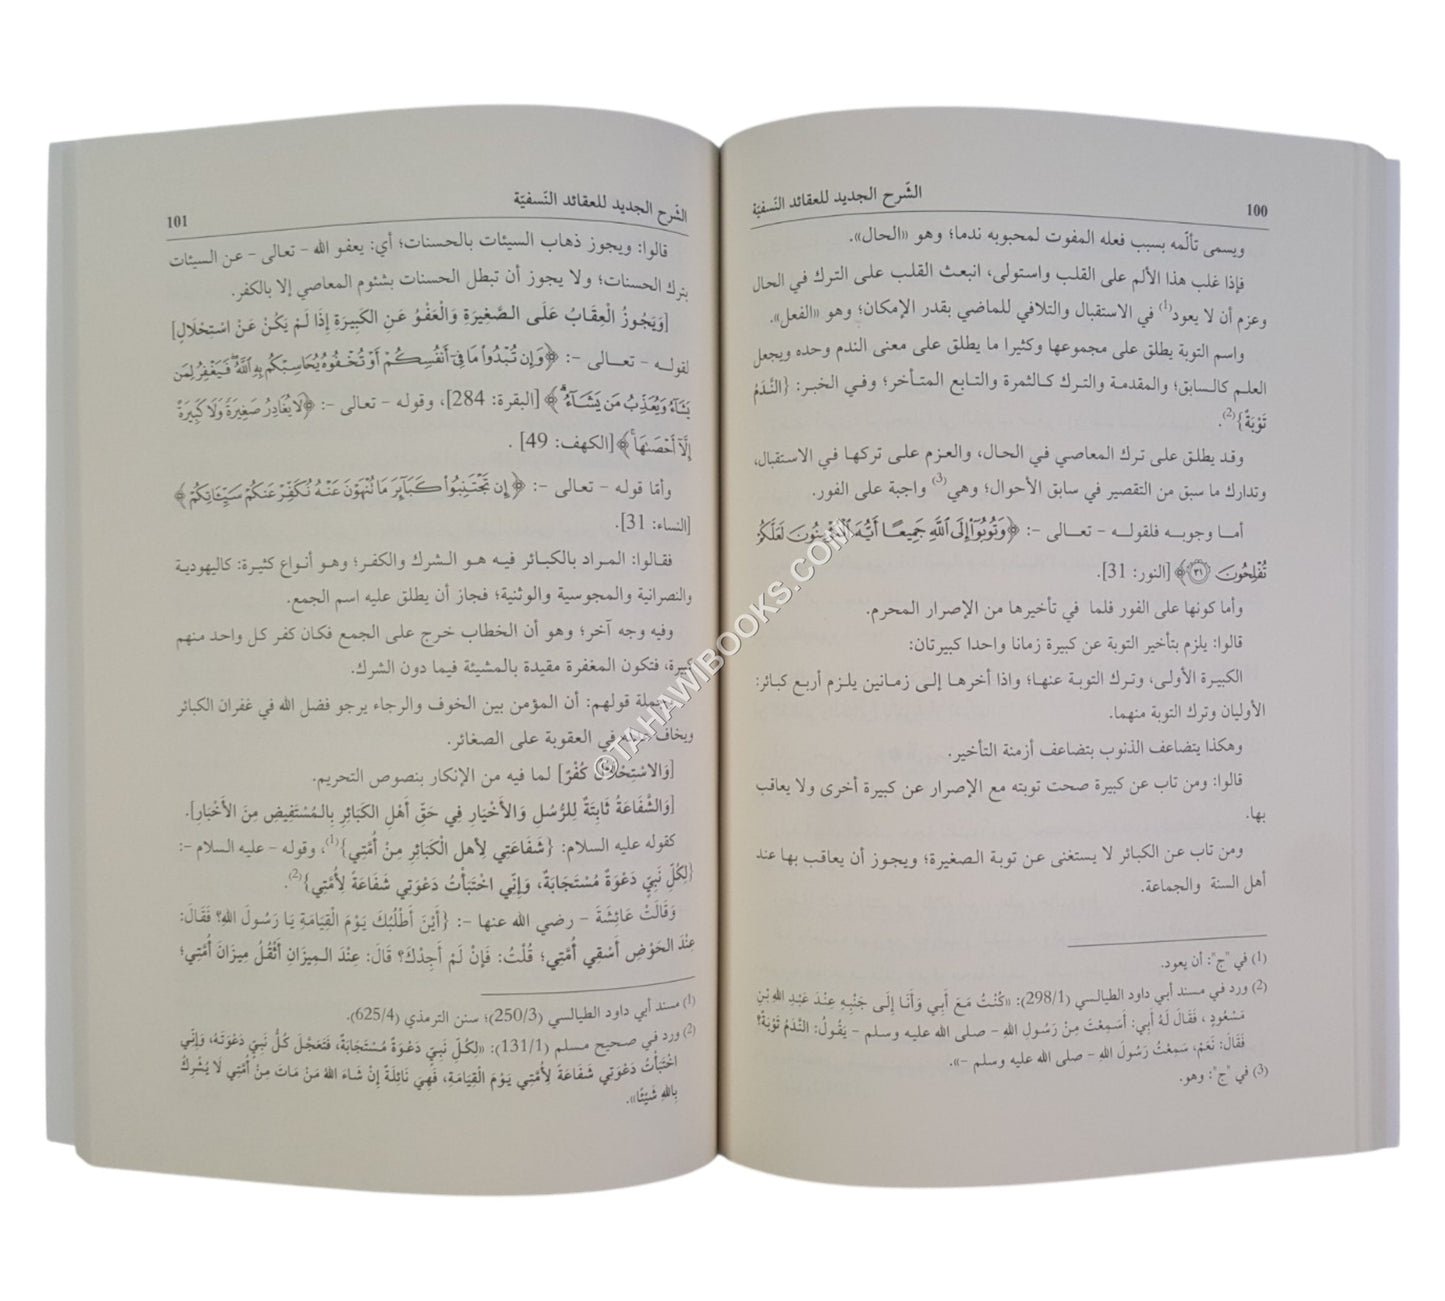 الشّرح الجديد للعقائد النّسفيّة
100
ويسمى تألّمه بسبب فعله المفوت لمحبوبه ندما؛ وهو «الحال».
فإذا غلب هذا الألم على القلب واستولى، انبعث القلب على الترك في الحال
وعزم أن لا يعود(1) في الاستقبال والتلافي للماضي بقدر الإمكان؛ وهو «الفعل».
واسم التوبة يطلق على مجموعها وكثيرا ما يطلق على معنى الندم وحده ويجعل
العلم كالسابق؛ والمقدمة والترك كالثمرة والتابع المتأخر؛ وفي الخبر: {النَّدَمُ
تَوْبَةٌ}(2).
وقد يطلق على ترك المعاصي في الحال، والعزم على تركها في الاستقبال،
وتدارك ما سبق من التقصير في سابق الأحوال؛ وهي(3) واجبة على الفور.
أما وجوبه فلقوله - تعالى -: ﴿وَتُوبُوٓا۟ إِلَى ٱللَّهِ جَمِيعًا أَيُّهَ ٱلْمُؤْمِنُونَ لَعَلَّكُمْ
تُفْلِحُونَ ٣١﴾ [النور: 31].
وأما كونها على الفور فلما في تأخيرها من الإصرار المحرم.
قالوا: يلزم بتأخير التوبة عن كبيرة زمانا واحدا كبيرتان:
الكبيرة الأولى، وترك التوبة عنها؛ واذا أخرها إلى زمانين يلزم أربع كبائر:
الأوليان وترك التوبة منهما.
وهكذا يتضاعف الذنوب بتضاعف أزمنة التأخير.
قالوا: ومن تاب عن كبيرة صحت توبته مع الإصرار عن كبيرة أخرى ولا يعاقب
بها.
ومن تاب عن الكبائر لا يستغنى عن توبة الصغيرة؛ ويجوز أن يعاقب بها عند
أهل السنة والجماعة.
(1) في "ج": أن يعود.
(2) ورد في مسند أبي داود الطيالسي (298/1): «كُنْتُ مَعَ أَبِي وَأَنَا إِلَى جَنْبِهِ عِنْدَ عَبْدِ اللهِ بْنِ
مَسْعُودٍ ، فَقَالَ لَهُ أَبِي: أَسَمِعْتَ مِنْ رَسُولِ اللهِ - صلى الله عليه وسلم - يَقُولُ: النَّدَمُ تَوْبَةٌ؟
فَقَالَ: نَعَمْ، سَمِعْتُ رَسُولَ اللهِ - صلى الله عليه وسلم -».
(3) في "ج": وهو.
الشّرح الجديد للعقائد النّسفيّة
101
قالوا: ويجوز ذهاب السيئات بالحسنات؛ أي: يعفو الله - تعالى - عن السيئات
بترك الحسنات؛ ولا يجوز أن تبطل الحسنات بشئوم المعاصي إلا بالكفر.
[وَيَجُوزُ الْعِقَابُ عَلَى الصَّغِيرَةِ وَالْعَفْوُ عَنِ الكَبِيرَةِ إِذَا لَمْ يَكُنْ عَنْ اسْتِحْلَالٍ]
لقوله - تعالى -: ﴿وَإِن تُبْدُوا۟ مَا فِىٓ أَنفُسِكُمْ أَوْ تُخْفُوهُ يُحَاسِبْكُم بِهِ ٱللَّهُ ۖ فَيَغْفِرُ لِمَن
يَشَآءُ وَيُعَذِّبُ مَن يَشَآءُ﴾ [البقرة: 284]، وقوله - تعالى -: ﴿لَا يُغَادِرُ صَغِيرَةً وَلَا كَبِيرَةً
إِلَّآ أَحْصَىٰهَا﴾ [الكهف: 49] .
وأمّا قوله - تعالى -: ﴿إِن تَجْتَنِبُوا۟ كَبَآئِرَ مَا تُنْهَوْنَ عَنْهُ نُكَفِّرْ عَنكُمْ سَيِّـَٔاتِكُمْ﴾
[النساء: 31].
فقالوا: المراد بالكبائر فيه هو الشرك والكفر؛ وهو أنواع كثيرة: كاليهودية
والنصرانية والمجوسية والوثنية؛ فجاز أن يطلق عليه اسم الجمع.
وفيه وجه آخر؛ وهو أن الخطاب خرج على الجمع فكان كفر كل واحد منهم
كبيرة، فتكون المغفرة مقيدة بالمشيئة فيما دون الشرك.
وجملة قولهم: أن المؤمن بين الخوف والرجاء يرجو فضل الله في غفران الكبائر
ويخاف في العقوبة على الصغائر.
[وَالاسْتِحْلَالُ كُفْرٌ] لما فيه من الإنكار بنصوص التحريم.
[وَالشَّفَاعَةُ ثَابِتَةٌ لِلرُّسُلِ وَالأَخْيَارِ فِي حَقِّ أَهْلِ الكَبَائِرِ بِالـمُسْتَفِيضِ مِنَ الأَخْبَارِ].
كقوله عليه السلام: {شَفَاعَتِي لِأهل الْكَبَائِرِ مِنْ أُمَّتِي}(1)، وقوله - عليه السلام -:
{لِكُلِّ نَبِيٍّ دَعْوَةٌ مُسْتَجَابَةٌ، وَإِنِّي اخْتَبَأْتُ دَعْوَتِي شَفَاعَةً لِأُمَّتِي}(2).
وَقَالَتْ عَائِشَةَ - رضي الله عنها -: {أَيْنَ أَطْلُبُكَ يَوْمَ الْقِيَامَةِ يَا رَسُولَ اللهِ؟ فَقَالَ:
عِنْدَ الحَوْضِ أَسْقِي أُمَّتِي؛ قُلْتُ: فَإِنْ لَمْ أَجِدْكَ؟ قَالَ: عِنْدَ الـمِيزَانِ أُثْقُلُ مِيزَانَ أُمَّتِي؛
(1) مسند أبي داود الطيالسي (250/3)؛ سنن الترمذي (625/4).
(2) ورد في صحيح مسلم (131/1): «لِكُلِّ نَبِيٍّ دَعْوَةٌ مُسْتَجَابَةٌ، فَتَعَجَّلَ كُلُّ نَبِيٍّ دَعْوَتَهُ، وَإِنِّي
اخْتَبَأْتُ دَعْوَتِي شَفَاعَةً لِأُمَّتِي يَوْمَ الْقِيَامَةِ، فَهِيَ نَائِلَةٌ إِنْ شَاءَ اللهُ مَنْ مَاتَ مِنْ أُمَّتِي لَا يُشْرِكُ
بِاللهِ شَيْئًا».
©TAHAWIBOOKS.COM